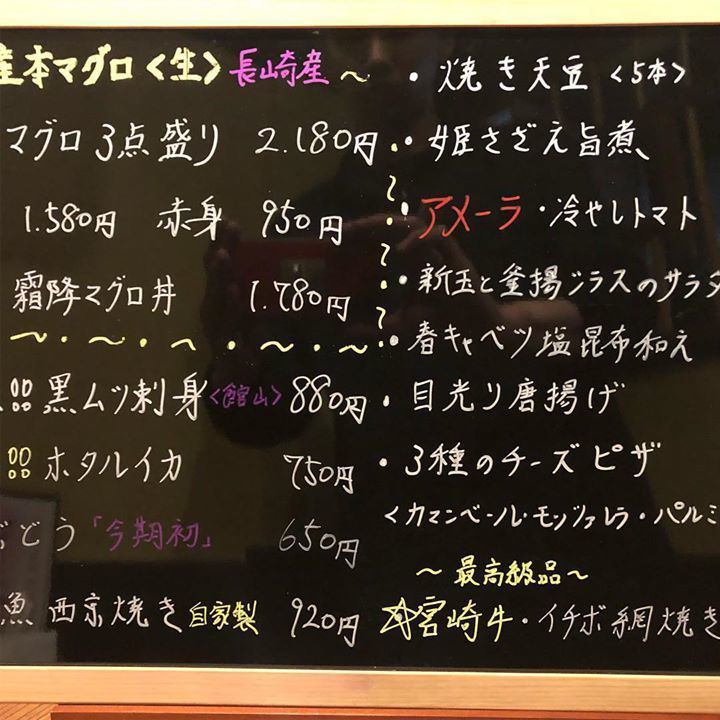 産本マグロ<生>長崎産〜
マグロ3点盛り 2.180円
1.580円 赤身 950円
霜降マグロ丼 1.780円
品黒ムツ刺身<館山> 880円
品ホタルイカ 750円
ぶどう「今期初」 650円
魚 西京焼き 自家製 920円
・焼き天豆<5本>
・姫さざえ旨煮
・アメーラ・冷やしトマト
・新玉と釜揚シラスのサラダ
・春キャベツ塩昆布和え
・目光り唐揚げ
・3種のチーズピザ
<カマンベール・モッツァレラ・パルミ
〜最高級品〜
☆宮崎牛・イチボ網焼き